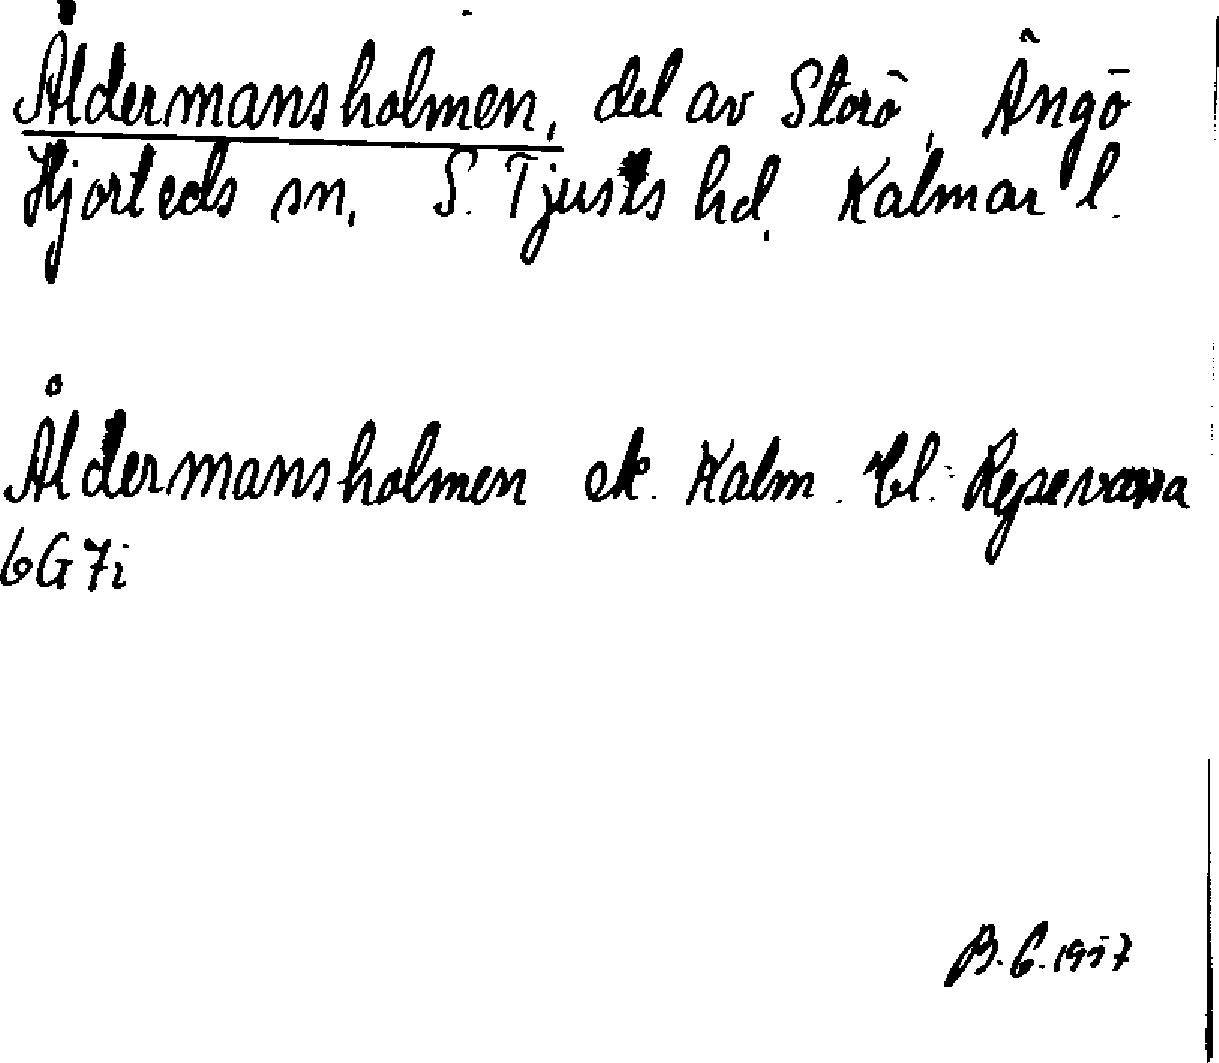 Åldermansholmen, del av Storö, Ängö
Hjorteds sn. S. Tjusts hd. Kalmar l.
Åldermansholmen ek. Kalm. bl.
6G7i
B.G. 1957